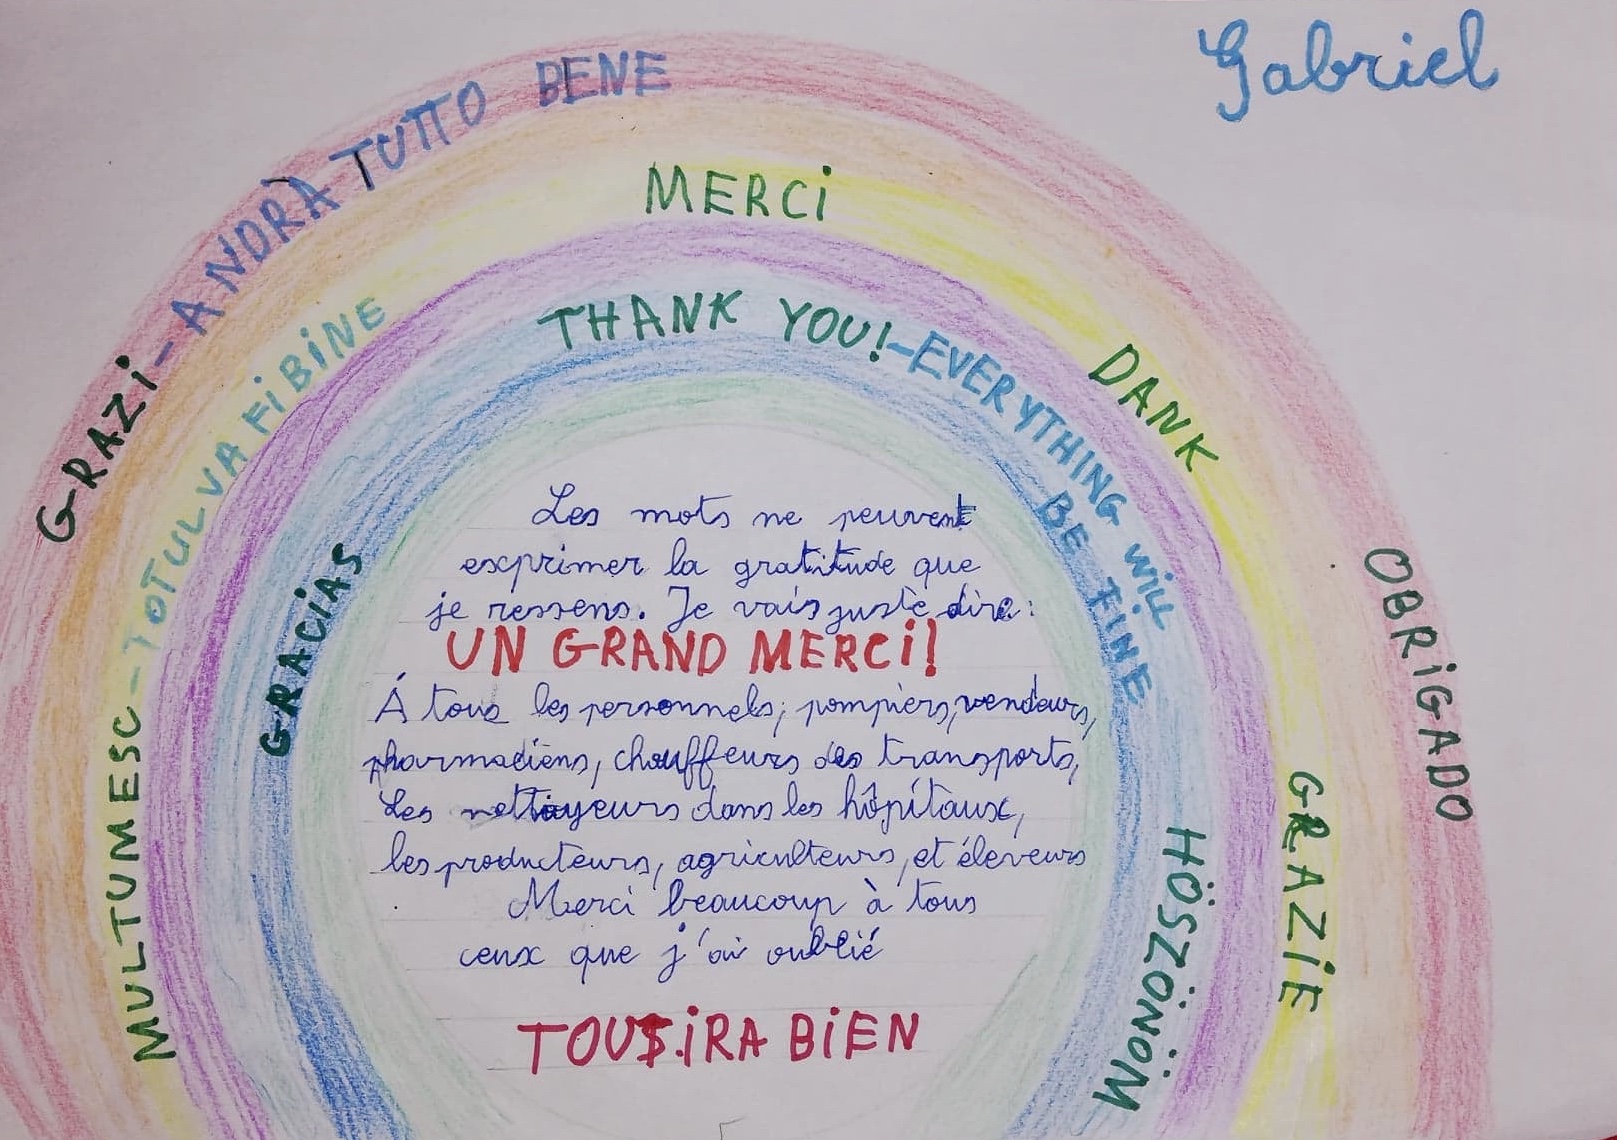 Gabriel
GRAZI - ANDRÀ TUTTO BENE
MERCi
MULTUMESC - TOTUL VA Fi BiNE
THANK YOU! - EVERYTHING WiLL
BE FiNE
DANK
GRACiAS
OBRiGADO
GRAZiE
HÖSZÖNÖM
Les mots ne peuvent
exprimer la gratitude que
je ressens. Je vais juste dire:
UN GRAND MERCi!
Á tous les personnels, pompiers, vendeurs,
pharmaciens, chauffeurs des transports,
Les nettoyeurs dans les hôpitaux,
les producteurs, agriculteurs, et éleveurs
Merci beaucoup à tous
ceux que j'ai oublié
TOUS iRA BiEN